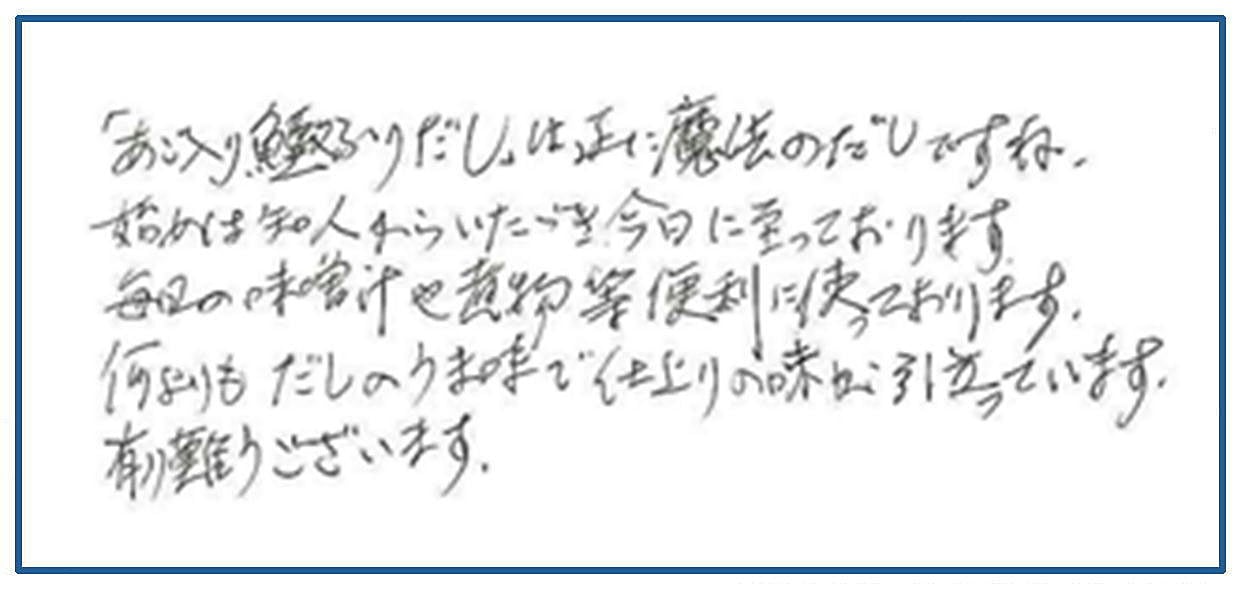 「あご入り鰹ふりだし」は正に魔法のだしですね。
始めは知人からいただき今日に至っております。
毎日の味噌汁や煮物等便利に使っております。
何よりもだしのうま味で仕上りの味が引立っています。
有り難うございます。